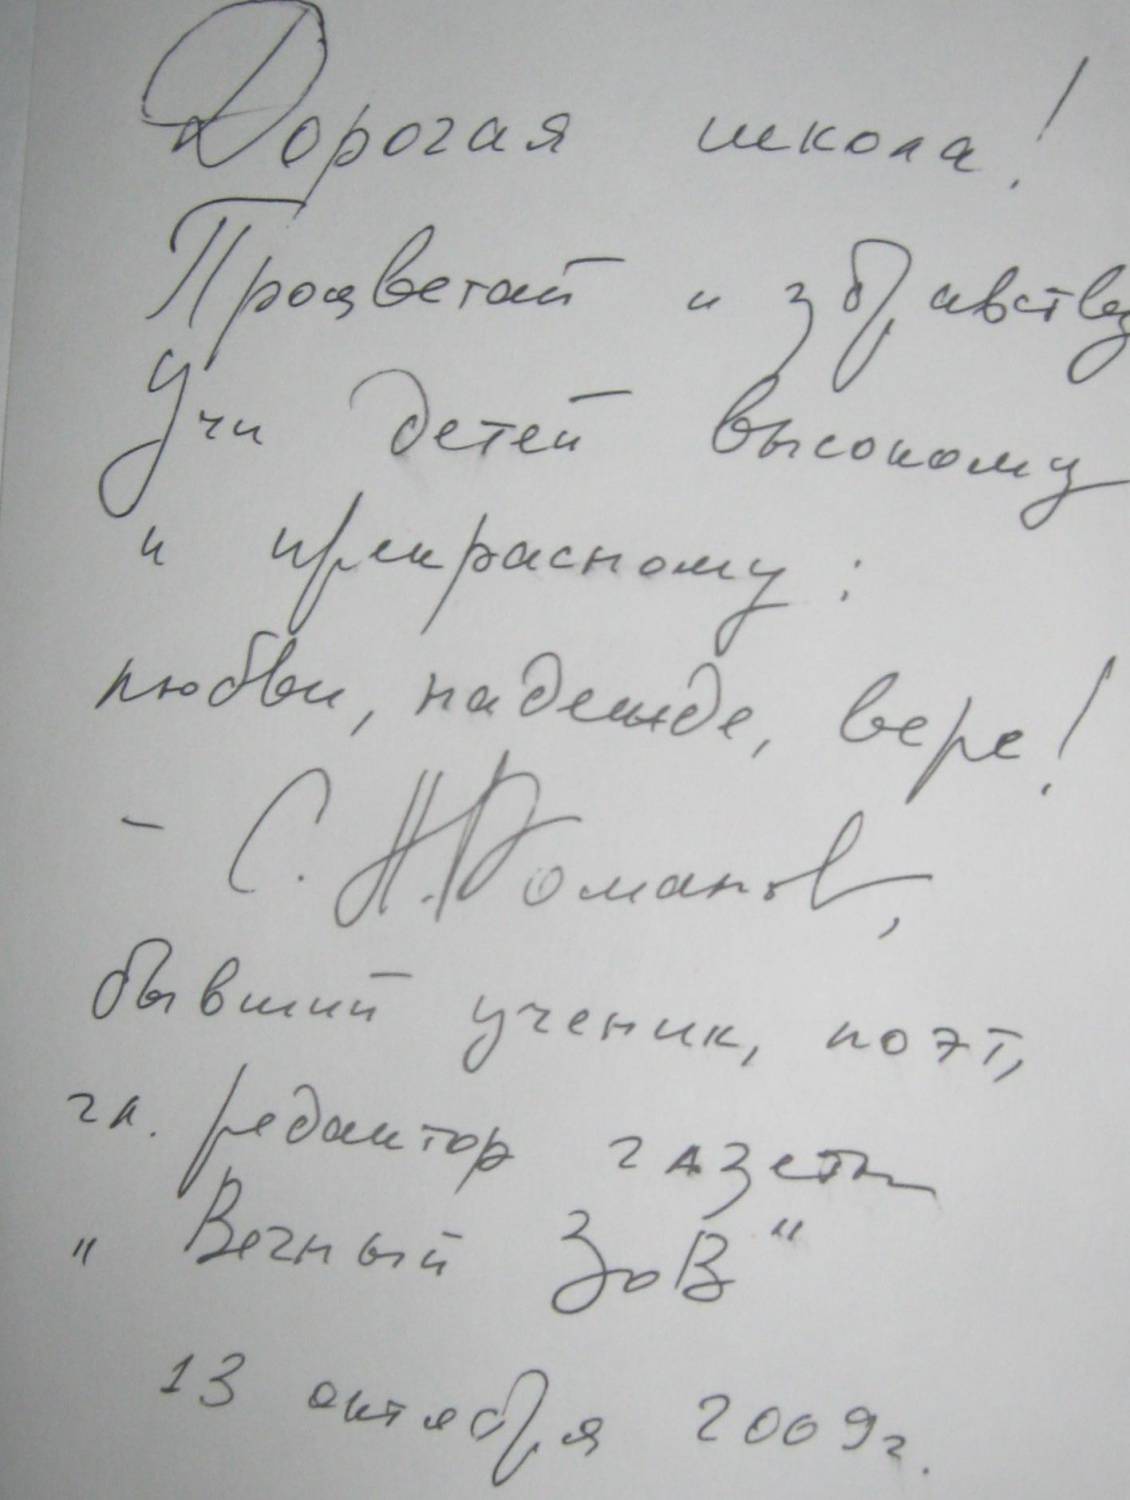 Дорогая школа!
Процветай и здравствуй
Учи детей высокому
и прекрасному:
любви, надежде, вере!
- С. Н. Романов,
бывший ученик, поэт,
гл. редактор газеты
"Вечный Зов"
13 октября 2009г.